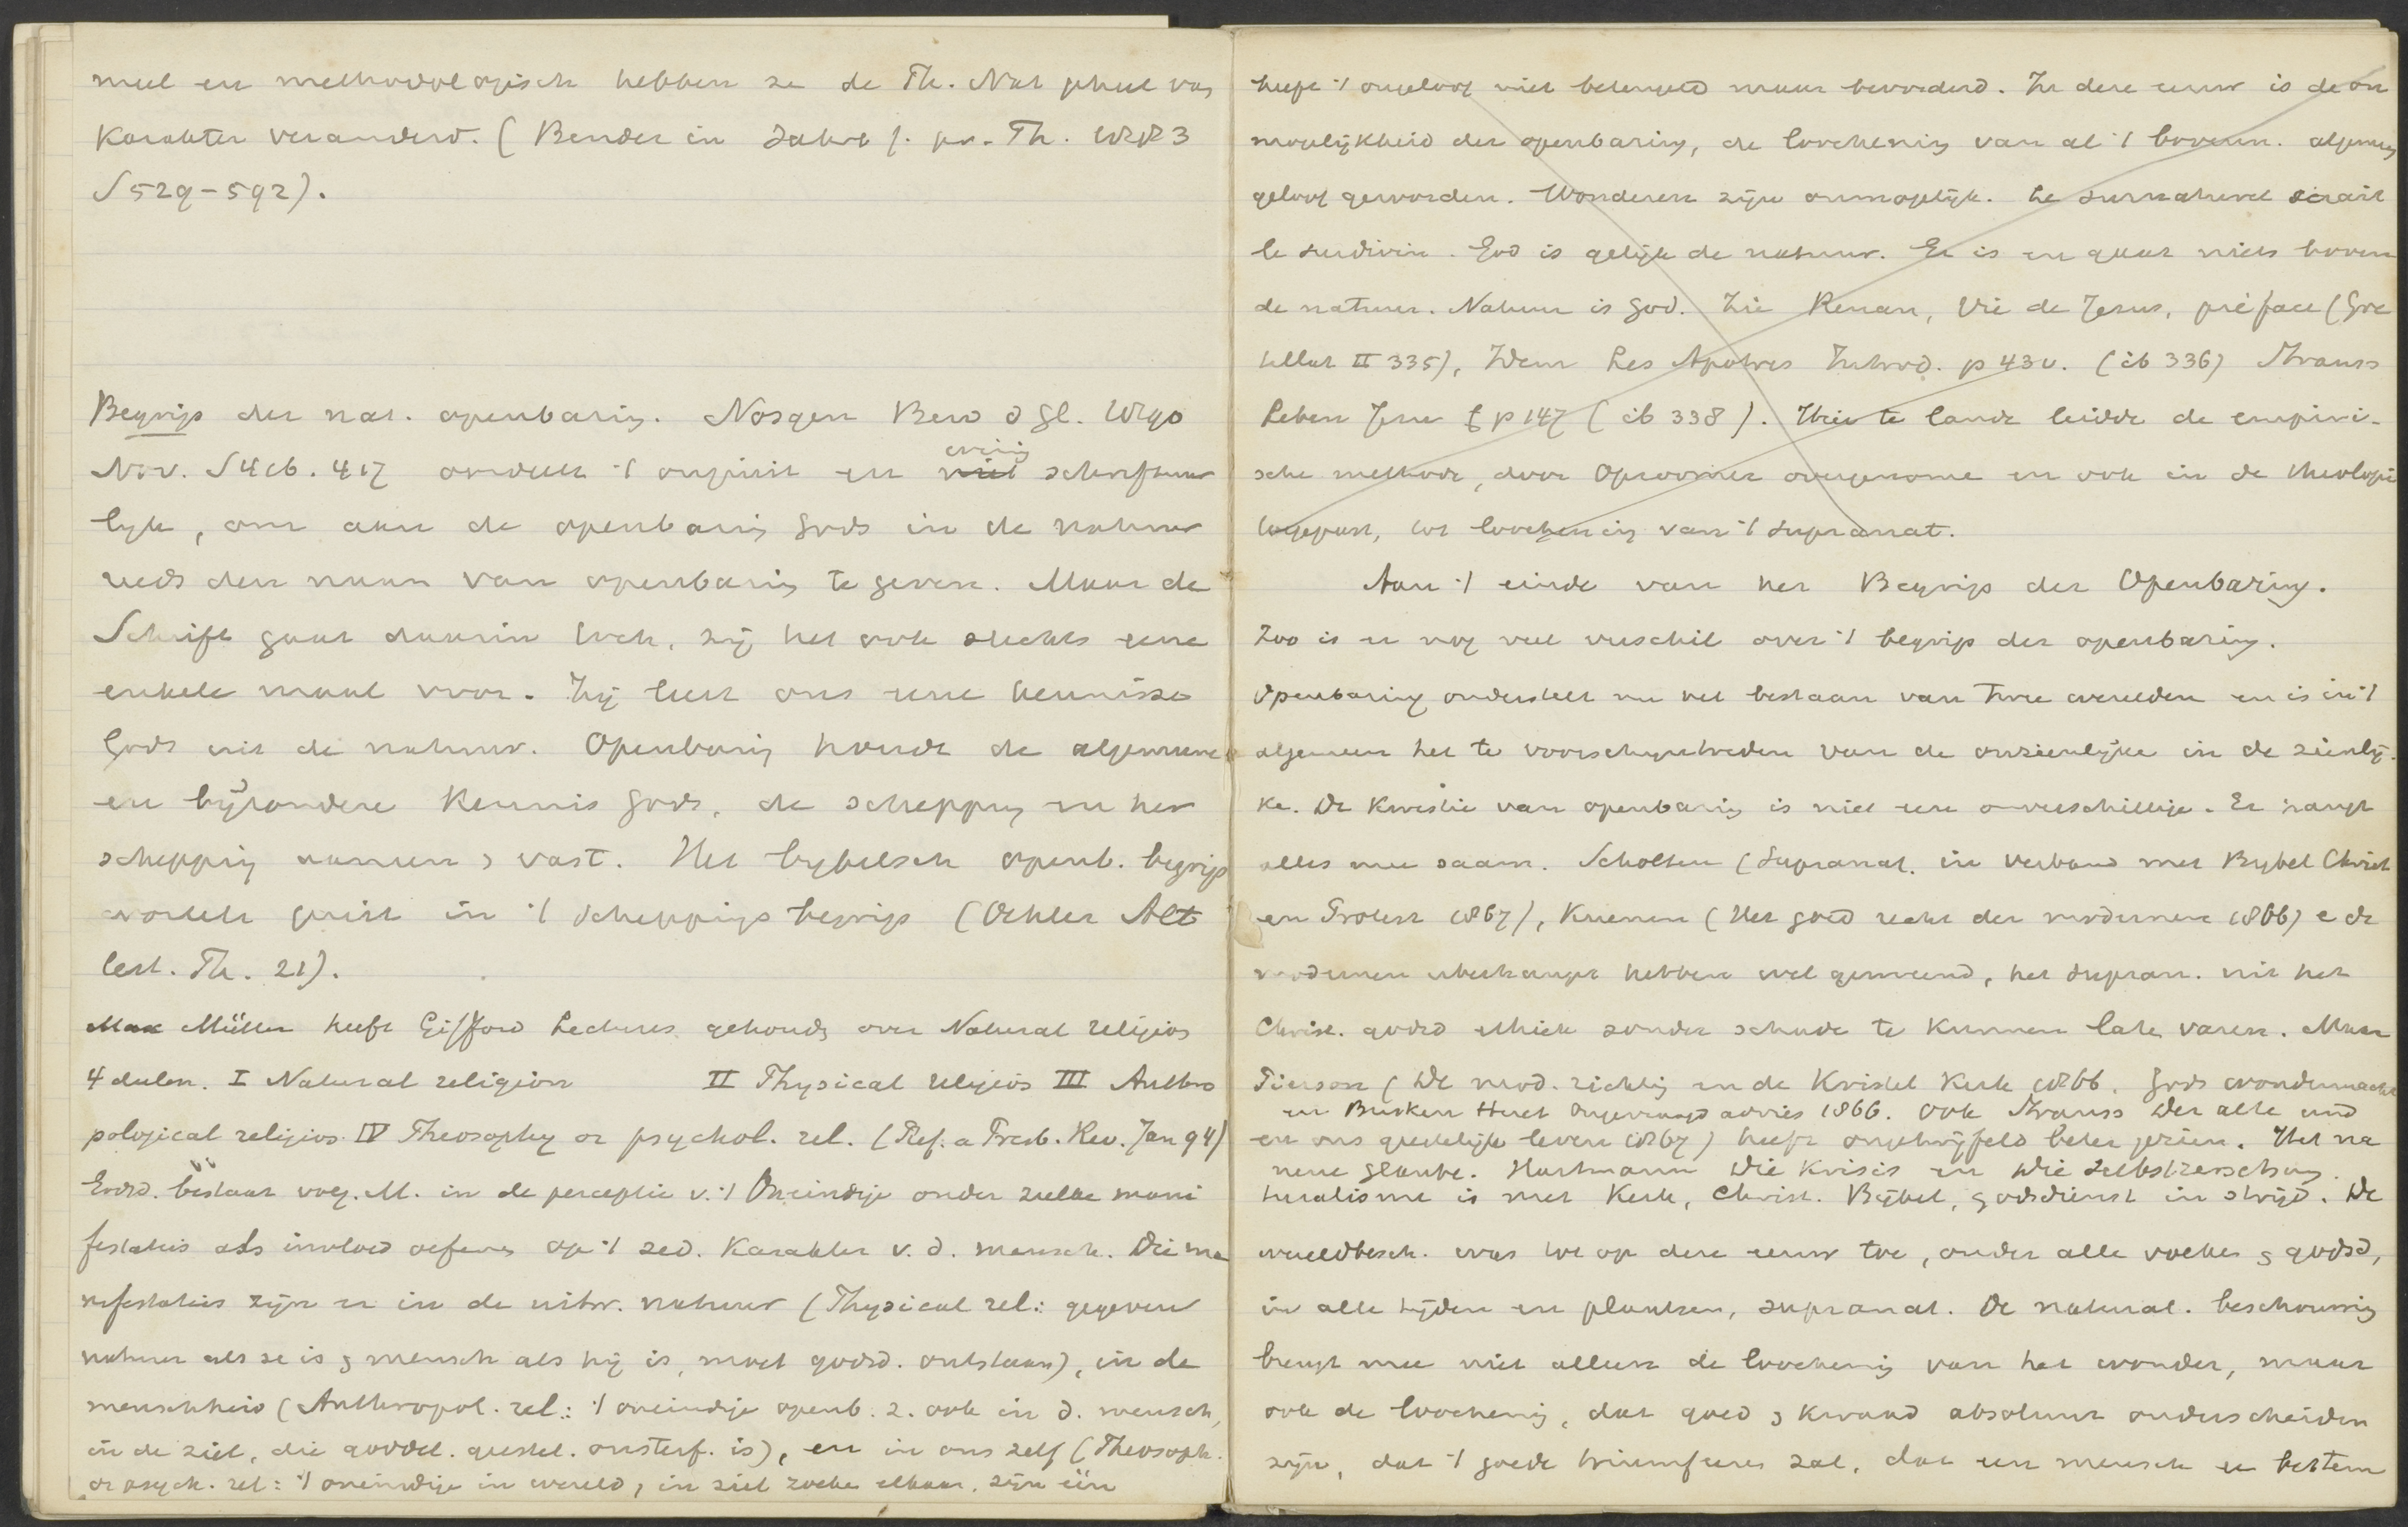 meel en methodologisch hebben ze de Th. Nat geheel van
karakter veranderd. (Bender in Jahrb f. pr. Th. 1883
S 529-592).
Begrip der nat. openbaring. Nösgen Bew d Gl. 1890
Nov. S 416. 417 oordeelt 't onjuist en weinig schriftuur
lijk, om aan de openbaring Gods in de natuur
reeds den naam van openbaring te geven. Maar de
Schrift gaat daarin toch, zij het ook slechts eene
enkele maal voor. Zij leert ons eene kennisse
Gods uit de natuur. Openbaring houdt de algemeene
en bijzondere kennis Gods, de schepping en her
schepping samen & vast. Het bijbelsch openb. begrip
wortelt juist in 't scheppingsbegrip (Oehler Alt
test. Th. 21).
Max Müller heeft Gifford Lectures gehouden over Natural religion
4 deelen. I Natural religion II Physical religion III Anthro
pological religion IV Theosophy or psychol. rel. (Ref. a Presb. Rev. Jan 94)
Godsd. bestaat volg. M. in de perceptie v. 't Oneindige onder zulke mani
festaties als invloed oefenen op 't zed. karakter v. d. mensch. Die ma
nifestaties zijn er in de uitw. natuur (Physical rel.: gegeven
natuur als ze is & mensch als hij is, moet godsd. ontstaan), in de
menschheid (Anthropol. rel.: 't oneindige openb. z. ook in d. mensch,
in de ziel, die goddel. geestel. onsterf. is), en in ons zelf (Theosoph.
or psych. rel: 't oneindige in wereld, in ziel zoeken elkaar, zijn één
heeft 't ongeloof niet beteugeld maar bevorderd. In deze eeuw is de on
mogelijkheid der openbaring, de loochening van al 't bovenn. algemeen
geloof geworden. Wonderen zijn onmogelijk. Le surnaturel serait
le surdivin. God is gelijk de natuur. Er is en gaat niets boven
de natuur. Natuur is God. Zie Renan, Vie de Jesus, préface (Gre
tillat II 335), Idem Les Apotres Introd. p 43 v. (ib 336) Strauss
Leben Jesu p 147 (ib 338). Hier te lande leidde de empiri-
sche methode, door Opzoomer overgenomen en ook in de theologie
toegepast, tot loochening van 't supranat.
Aan 't einde van het Begrip der Openbaring.
Zoo is er nog veel verschil over 't begrip der openbaring.
Openbaring onderstelt nu het bestaan van twee werelden en is in 't
algemeen het te voorschijntreden van de onzienlijke in de zienlij-
ke. De kwestie van openbaring is niet een onverschillige. Er hangt
alles mee saam. Scholten (Supranat. in verband met Bijbel Christ
en Protest 1867), Kuenen (Het goed recht der modernen 1866) e de
modernen überhaupt hebben wel gemeend, het supran. uit het
Christ. godsd ethiek zonder schade te kunnen laten varen. Maar
Pierson (De mod. richting en de Kristel kerk 1866. Gods wondermacht
en Busken Huet Ongevraagd advies 1866. Ook Strauss Der alte und
en ons geestelijk leven 1867) heeft ongetwijfeld beter gezien. Het na
neue Glaube. Hartmann Die Krisis en Die Selbstzersetzung.
turalisme is met Kerk, Christ. Bijbel, godsdienst in strijd. De
wereldbesch. was tot op deze eeuw toe, onder alle volken & godsd,
in alle tijden en plaatsen, supranat. De natural. beschouwing
brengt mee niet alleen de loochening van het wonder, maar
ook de loochening, dat goed & kwaad absoluut onderscheiden
zijn, dat 't goede triumfeeren zal, dat een mensch er bestem